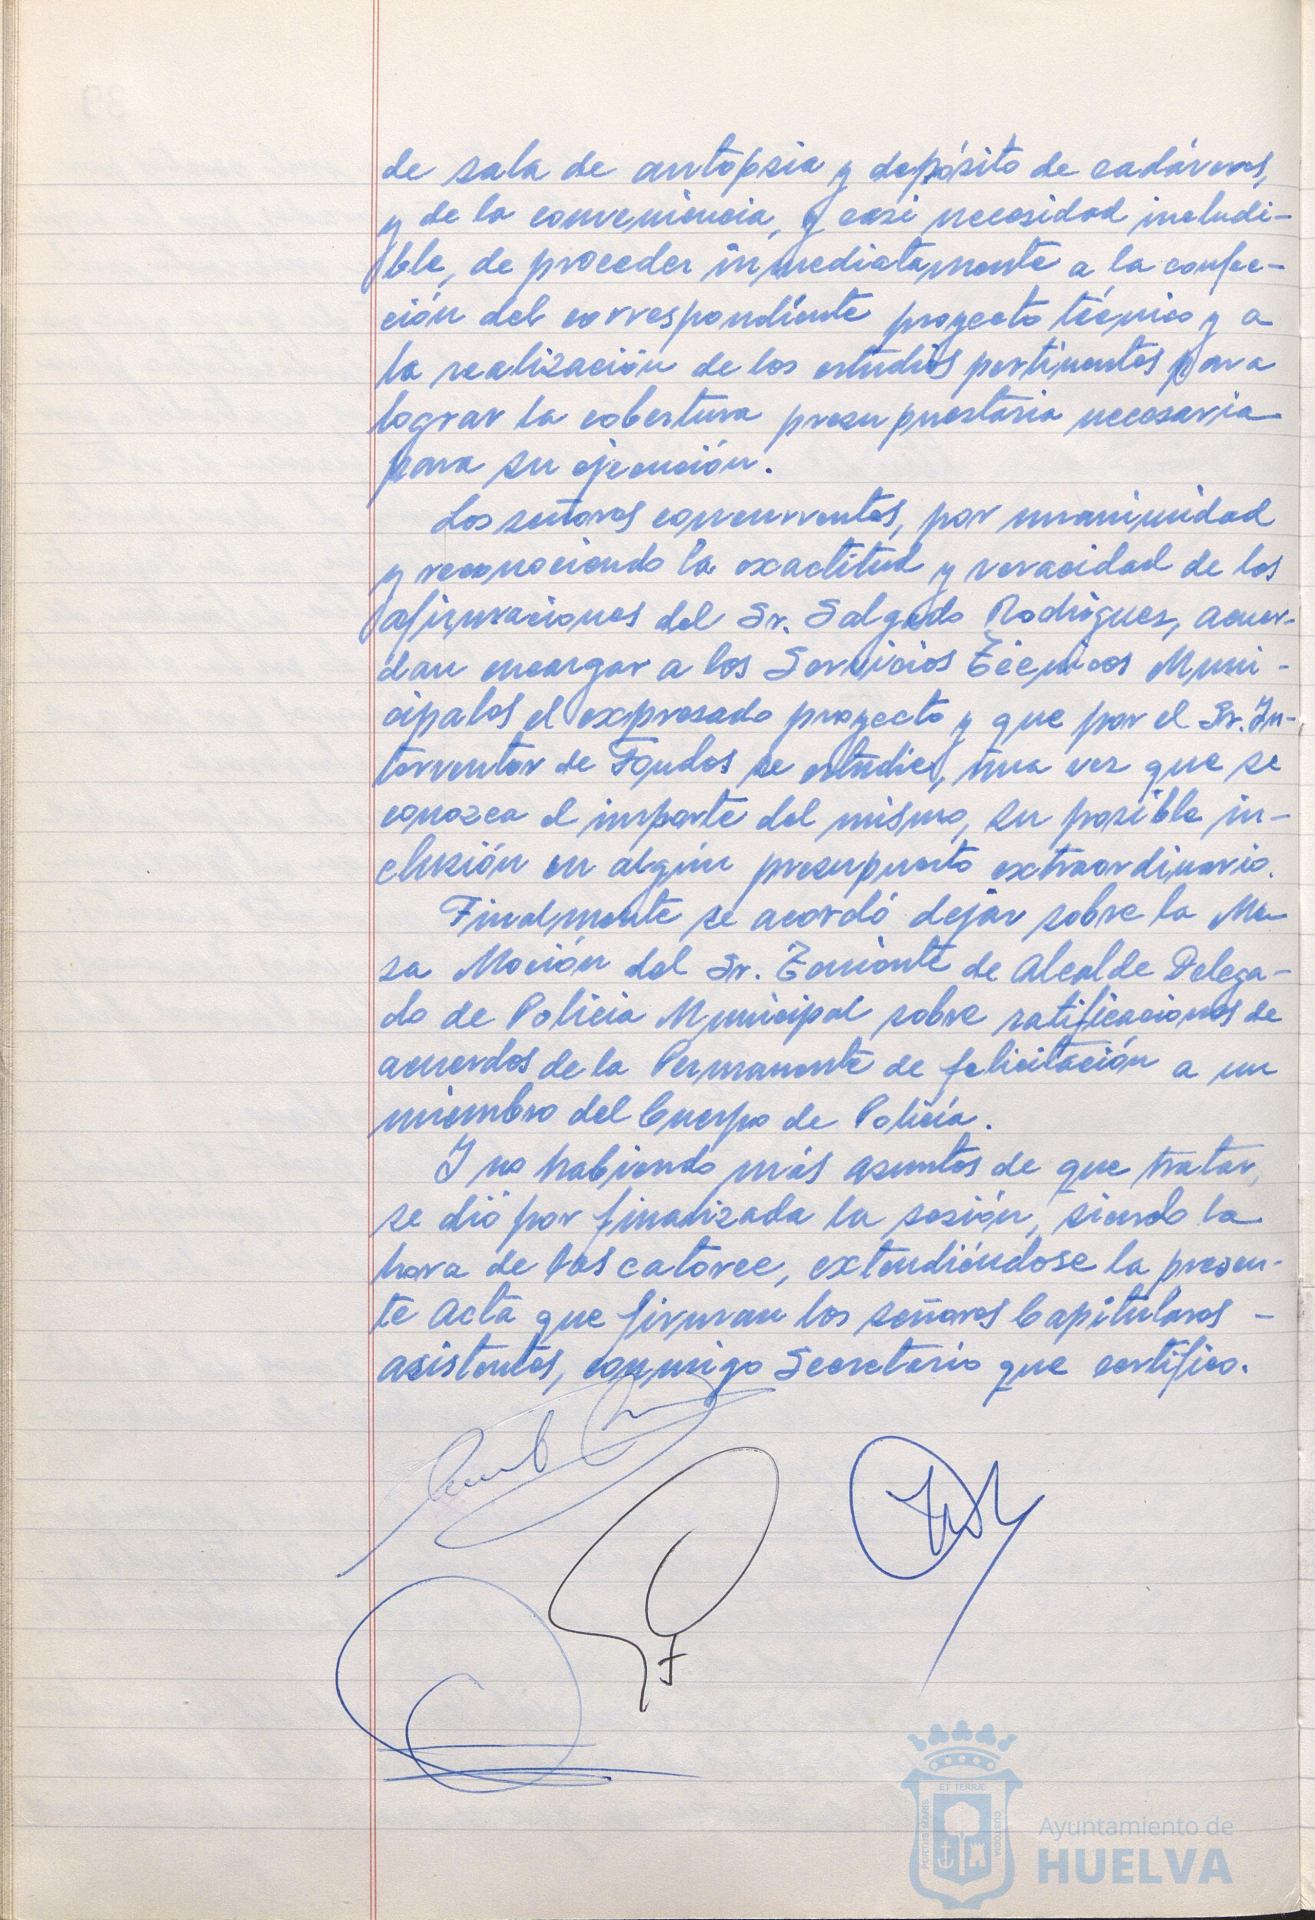 de sala de autopsia y depósito de cadáveres,
y de la conveniencia, y casi necesidad ineludi-
ble, de proceder inmediatamente a la confec-
ción del correspondiente proyecto técnico y a
la realización de los estudios pertinentes para
lograr la cobertura presupuestaria necesaria
para su ejecución.
Los señores concurrentes, por unanimidad
y reconociendo la exactitud y veracidad de las
afirmaciones del Sr. Salgado Rodríguez, acuer-
dan encargar a los Servicios Técnicos Muni-
cipales el expresado proyecto y que por el Sr. In-
terventor de Fondos se estudie, una vez que se
conozca el importe del mismo, su posible in-
clusión en algún presupuesto extraordinario.
Finalmente se acordó dejar sobre la Me-
sa Moción del Sr. Teniente de Alcalde Delega-
do de Policia Municipal sobre ratificaciones de
acuerdos de la Permanente de felicitación a un
miembro del Cuerpo de Policía.
Y no habiendo más asuntos de que tratar,
se dió por finalizada la sesión, siendo la
hora de las catorce, extendiéndose la presen-
te Acta que firman los señores Capitulares -
asistentes, conmigo Secretario que certifico.
ET TERRÆ
PORTUS MARIS
CUSTODIA
Ayuntamiento de
HUELVA